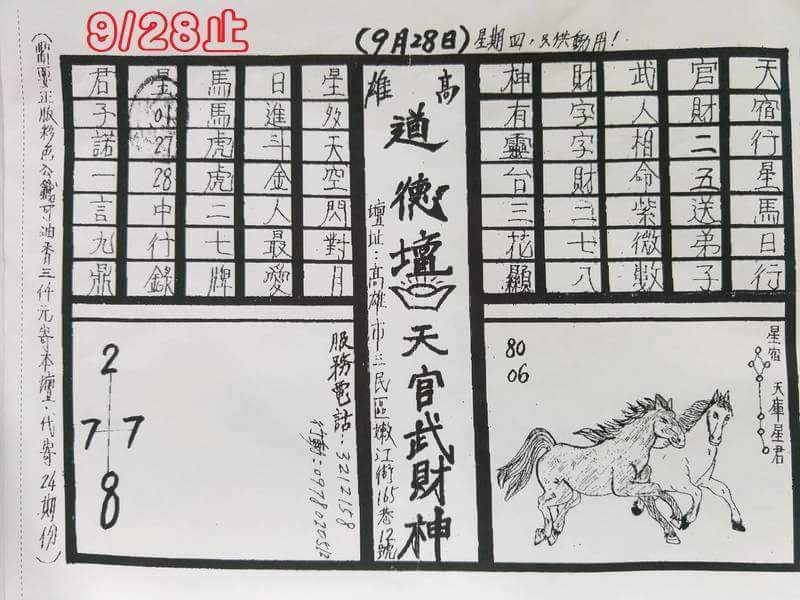 9/28止
(9月28日)星期四,只供動用!
天宿行星馬日行
官財二五送弟子
武人相命紫微數
財字字財二七八
神有靈台三花顯
高雄
道德壇
天官武財神
壇址:高雄市三民區嫩江街165巷12號
星天空閃對月
日進斗金人最愛
馬馬虎虎二七牌
星01 27 28中行錄
君子諾一言九鼎
星宿
天庫星君
80
06
服務電話:3212158
行動:
2
7 7
8
(需要正版彩色公籤可油香三仟元寄本壇·代寄24期份)